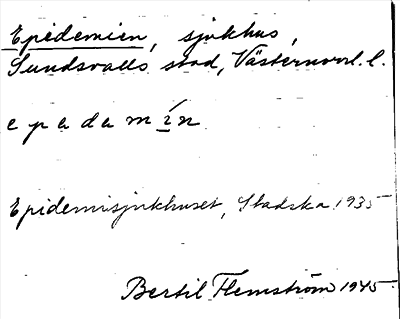 Epidemien, sjukhus,
Sundsvalls stad, Västernorrl. l.
e p a d a m í n
Epidemisjukhuset, Stadska 1935
Bertil Flemström 1945.